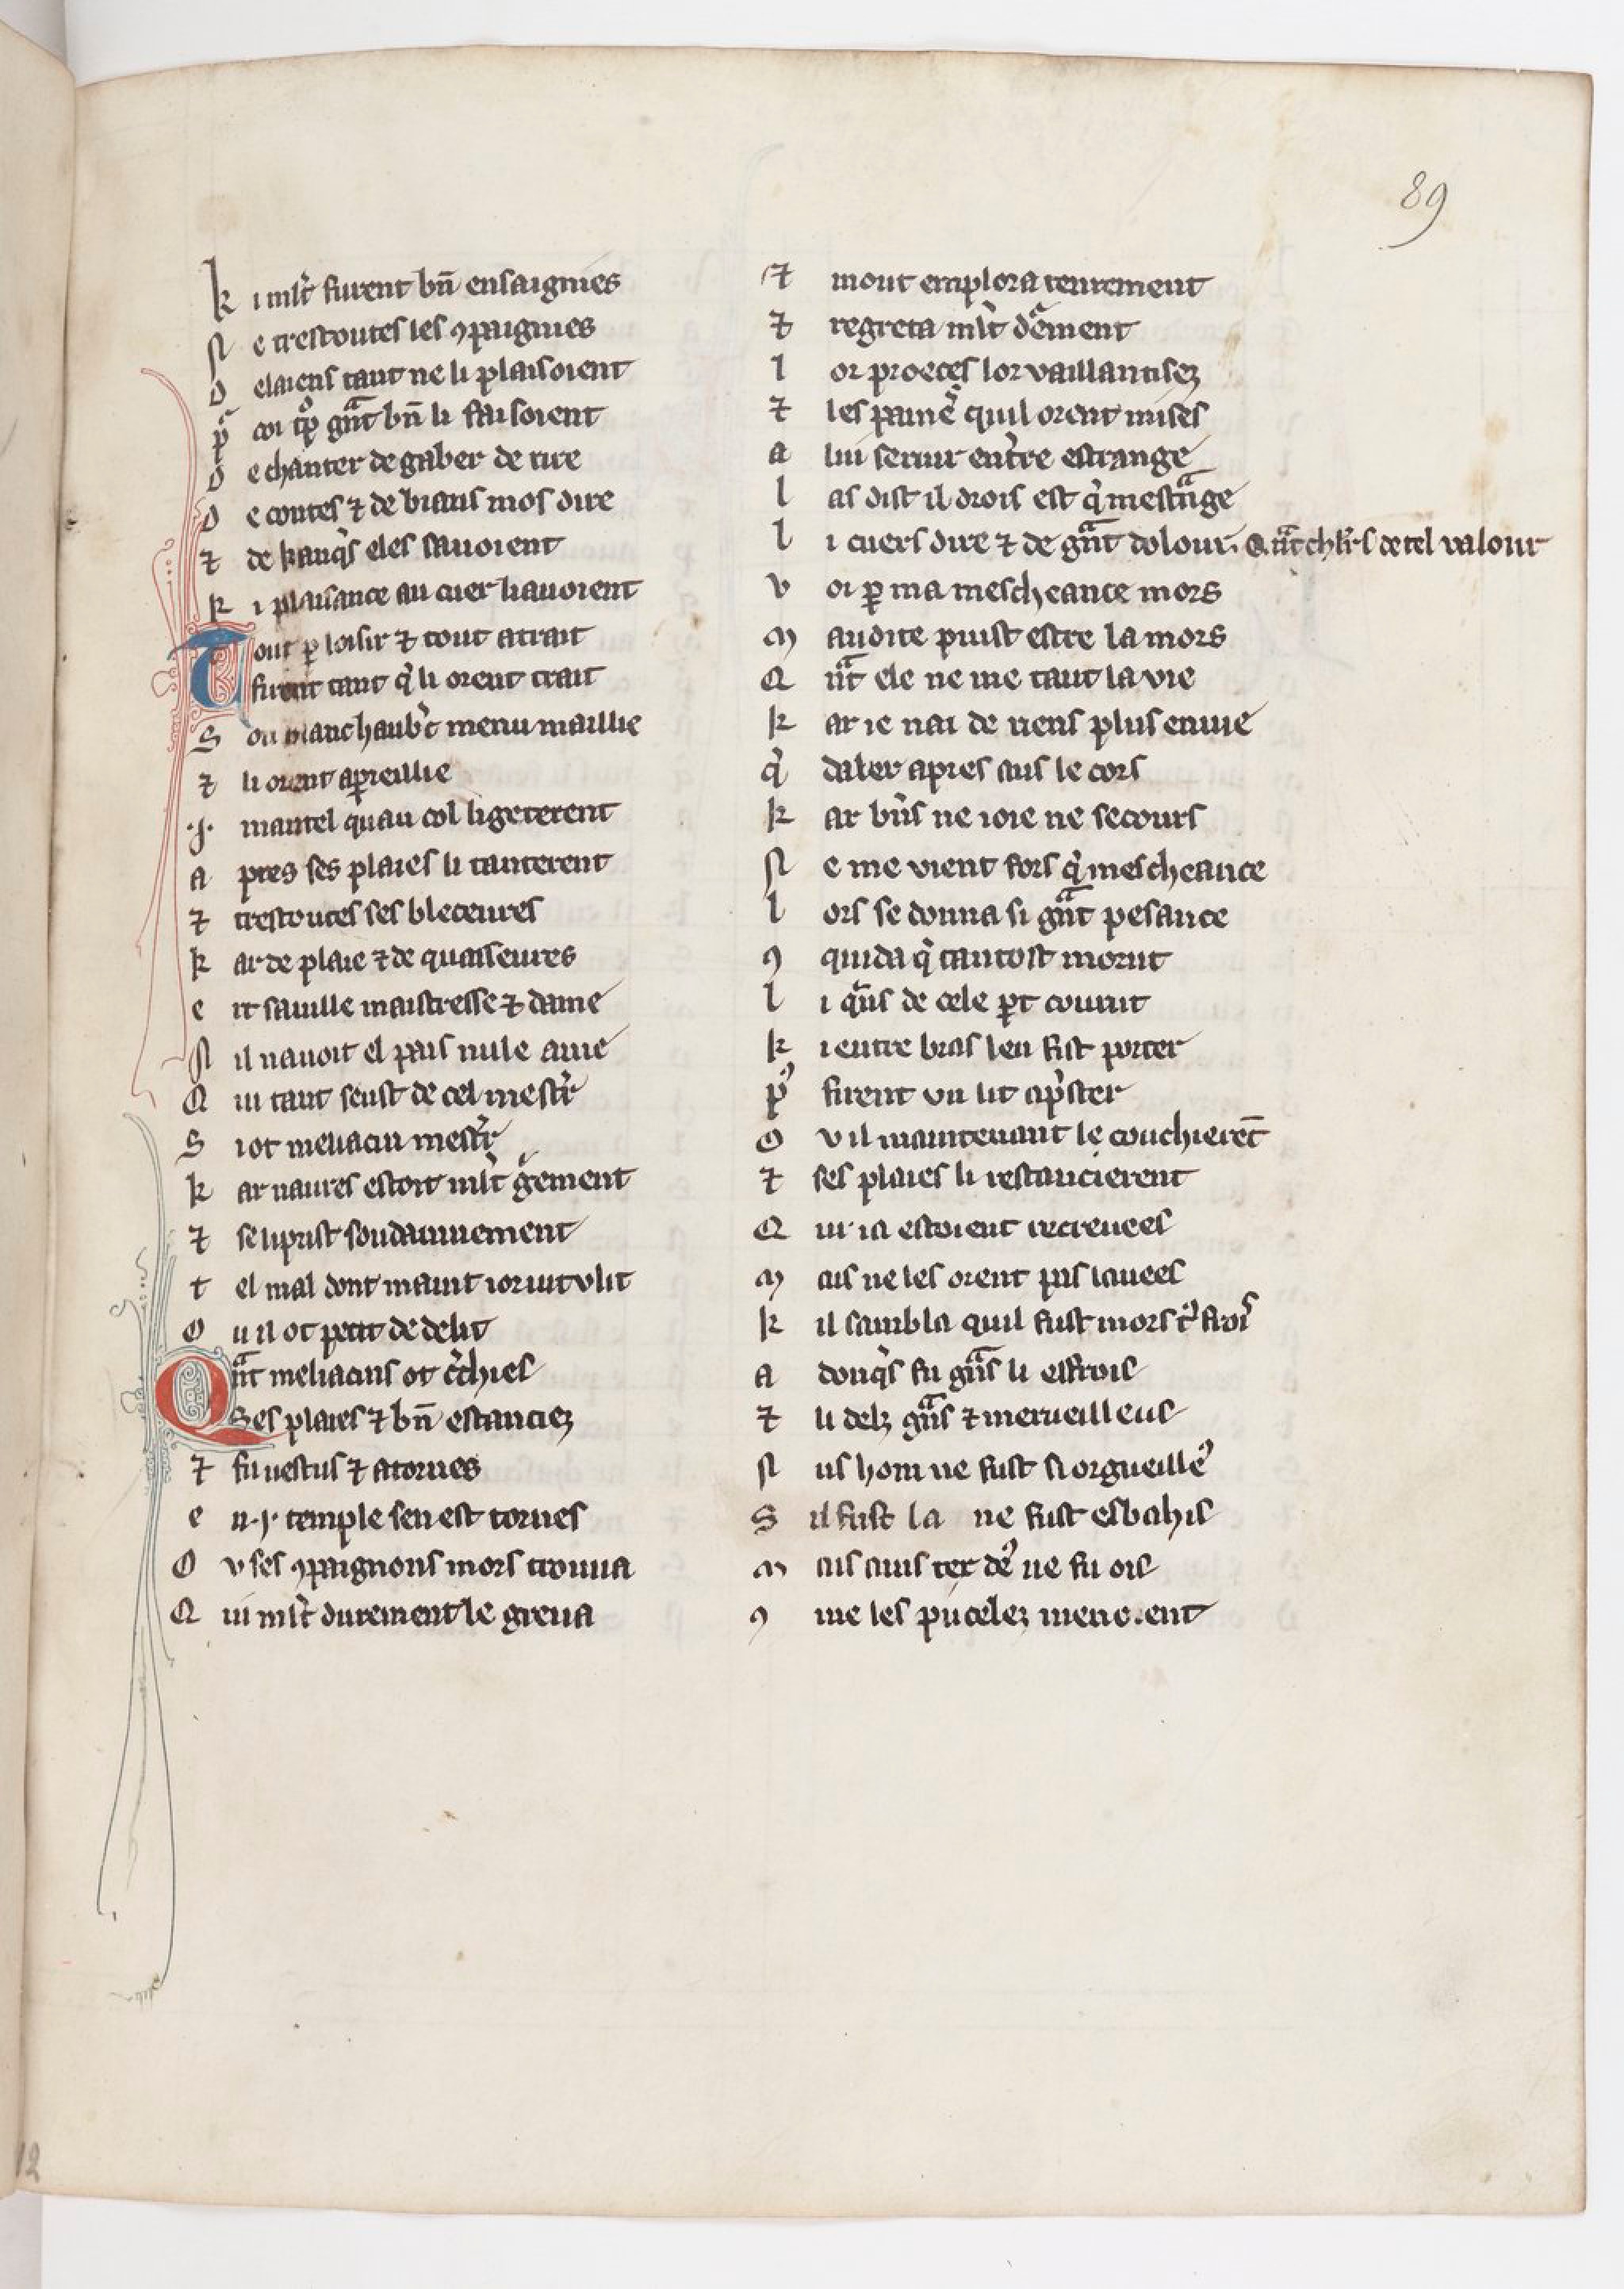 89
k i ml't furent bn̄ ensaignies
N e trestoutes les ꝯpaignies
D elaiens tant ne li plaisoient
p coi trop gnt bn̄ li faisoient
D e chanter de gaber de rire
D e contes ⁊ de biaus mos dire
⁊ de kanq̓s eles sauoient
k i plaisance au cuer li auoient
Tout ꝑ loisir ⁊ tout atrait
furent tant q̓ li orent trait
S on blanc haub't menu maillie
⁊ li orent apareillie
.j. mantel quau col li geterent
a pres ses plaies li tanterent
⁊ trestoutes ses bleceures
k ar de plaie ⁊ de quasseures
e rt sauille maistresse ⁊ dame
N il nauoit el pais nule ame
Q ui tant seust de cel mestr̓
S i ot meliacin mestr̓
k ar naures estoit ml't gͥement
⁊ se li prist soudainnement
t el mal dont maint ior iut ou lit
O u il ot petit de delit
Qn̄t meliacins ot c̓chies
Ses plaies ⁊ bn̄ estanciez
⁊ fu uestus ⁊ atornes
e n .j. temple sen est tornes
O v ses ꝯpaignons mors trouua
Q ui ml't durement le greua
⁊ mout emplora tenrement
⁊ regreta ml't dͥement
l or proeces lor vaillantisez
⁊ les paines quil orent mises
a lui seruir en t̓re estrange
l as dist il drois est q̓ mestrange
l i cuers dire ⁊ de gn̄t dolour. Qn̄t chl'rs de tel valour
v oi ꝑ ma mescheance mors
M audite puist estre la mors
Q n̄t ele ne me taut la vie
k ar ie nai de riens plus enuie
q̓ daler apres aus le cors
k ar bn̄s ne ioie ne secours
N e me vient fors q̓ mescheance
l ors se donna si gn̄t pesance
ꝯ quida q̓ tantost morut
l i q̄ns de cele ꝑt courut
k i entre bras len fist porter
p᷒ firent vn lit ap̓ster
O v il maintenant le couchierēt
⁊ ses plaies li restancierent
Q ui ia estoient recreuees
M ais ne les orent pas lauees
k il sambla quil fust mors t᷒ frois
a donq̓s fu gn̄s li effrois
⁊ li delz gn̄s ⁊ merueilleus
N us hom ne fust si orgueille᷒
S il fust la ne fust esbahis
M ais auis tex de᷒ ne fu ois
ꝯ me les pucelez mene.ent